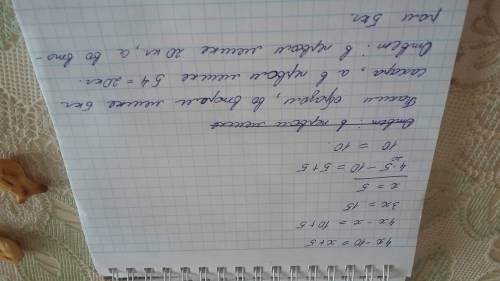 4x - 10 = x + 5
4x - x = 10 + 5
3x = 15
x = 5
4·5 - 10 = 5 + 5
20
10 = 10
Ответ: в первом мешке
Таким образом, во втором мешке 5 кг
сахара, а в первом мешке 5·4 = 20 кг.
Ответ: в первом мешке 20 кг, а во вто-
ром 5 кг.